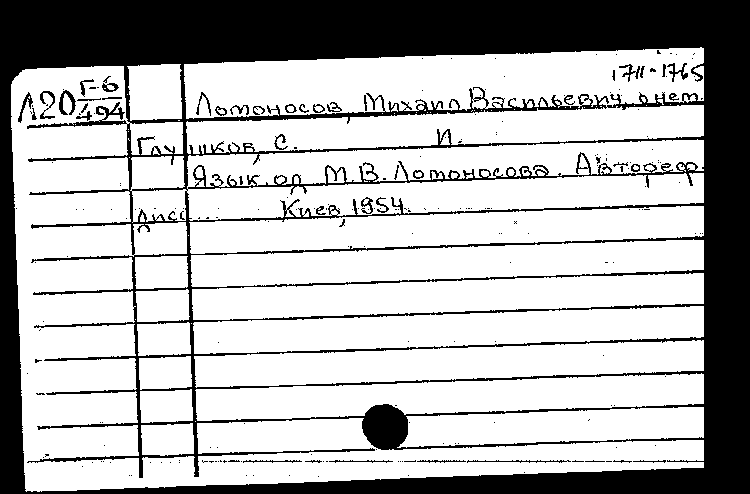 1711-1765
Л20 Г-6/494 Ломоносов, Михаил Васильевич, о нем.
Глушков, С. И.
Язык од М.В. Ломоносова. Автореф.
дисс... Киев, 1954.